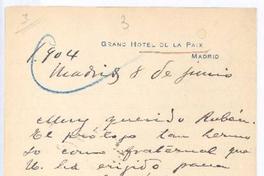 3
3
GRAND HOTEL DE LA PAIX
MADRID
1904
Madrid 8 de junio
Muy querido Rubén.
El prólogo tan hermo
so como fraternal que
U. ha erigido para